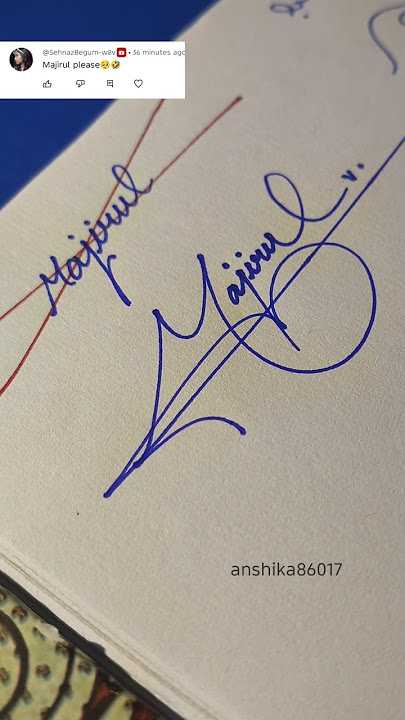 @SehnazBegum-w8v • 36 minutes ago
Majirul please🥺🤣
Majirul
Majirul
anshika86017